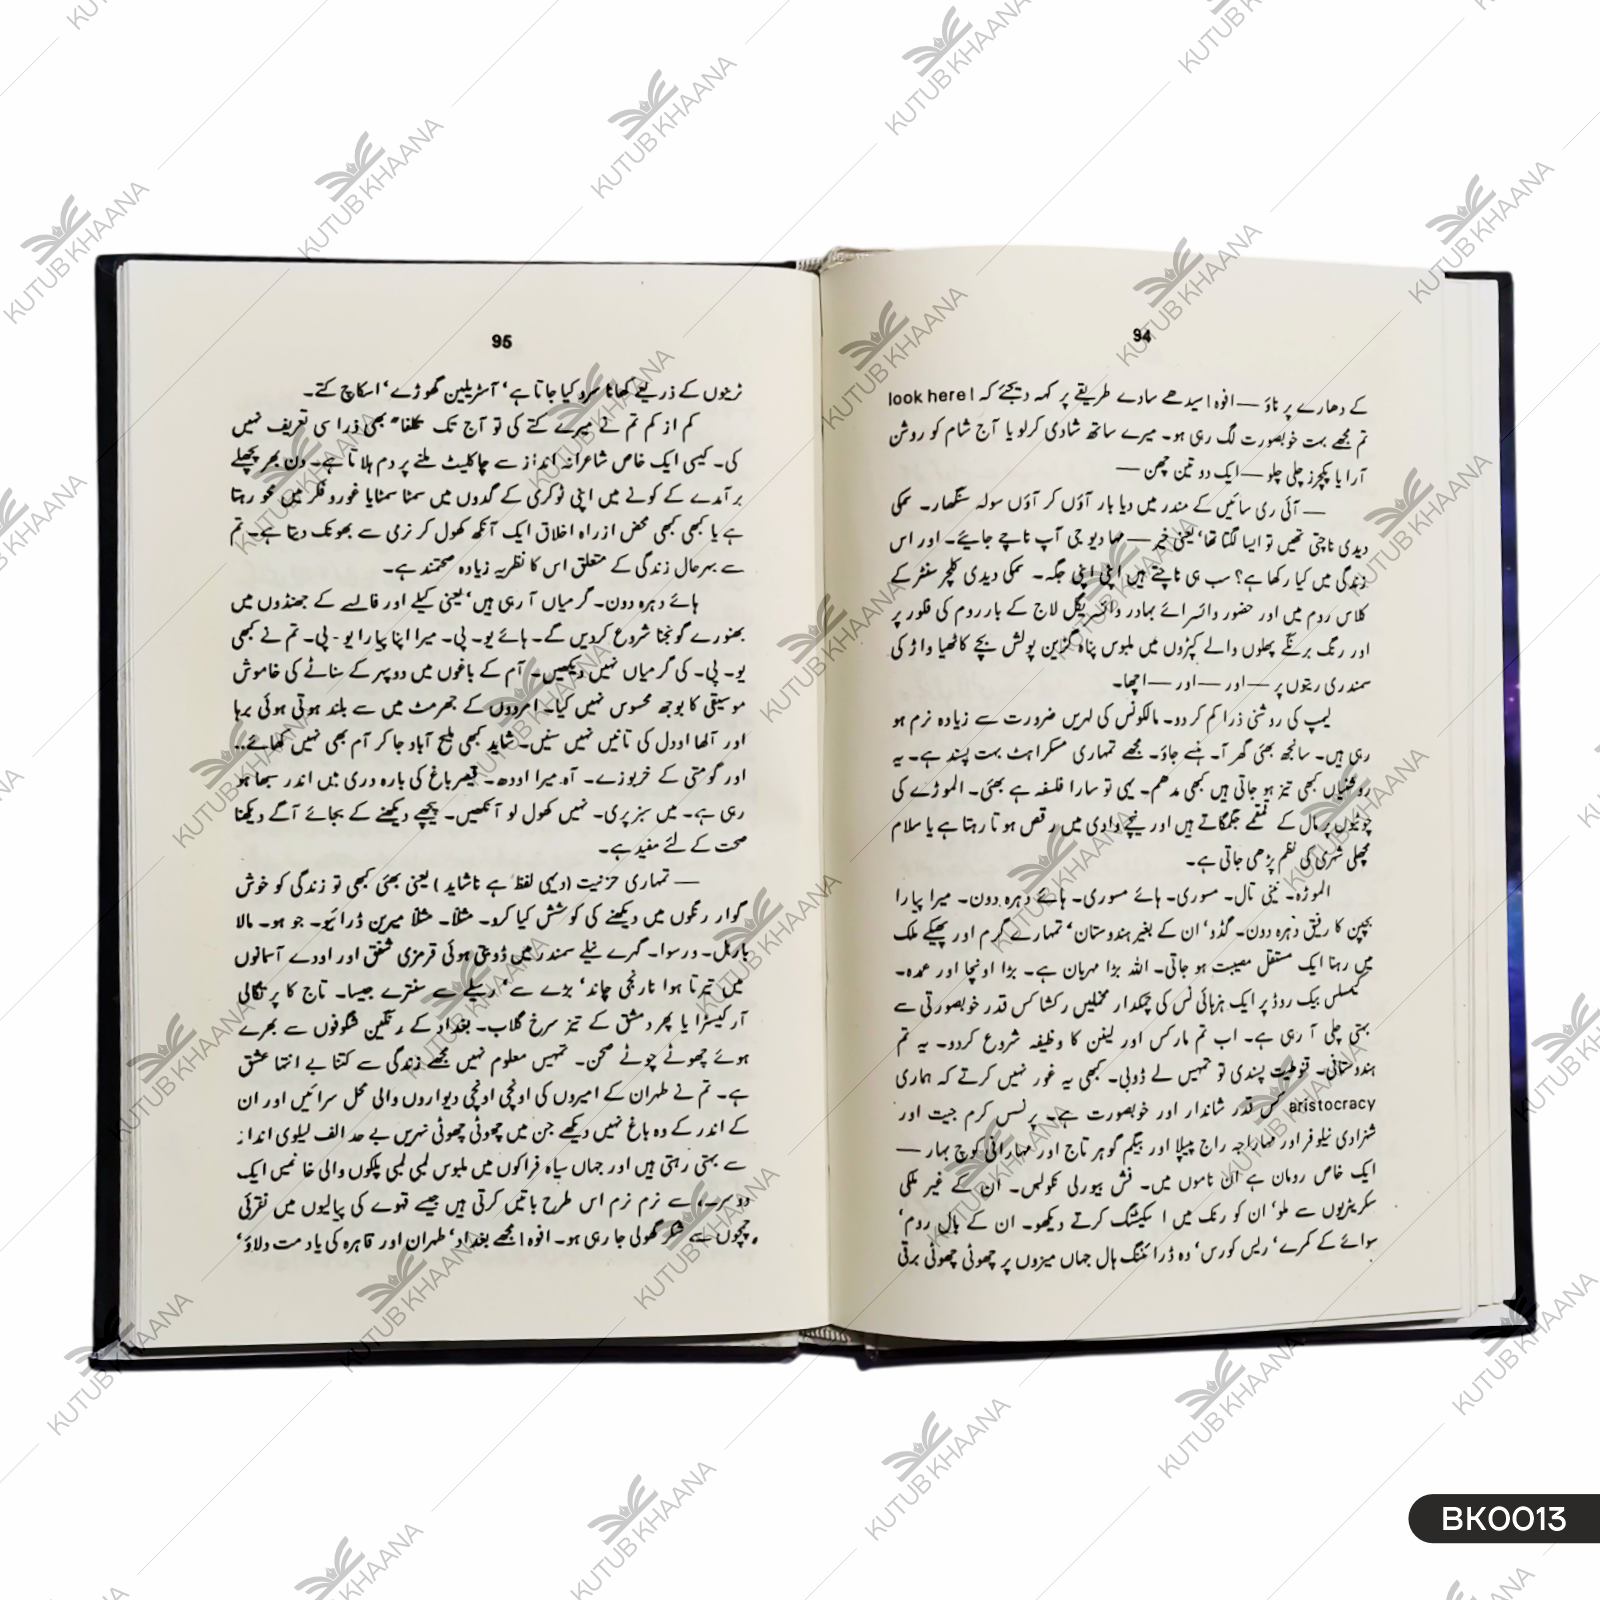 94
کے دھارے پر ناؤ — افوہ! سیدھے سادے طریقے پر کہہ دیجئے کہ look here!
تم مجھے بہت خوبصورت لگ رہی ہو۔ میرے ساتھ شادی کرلو یا آج شام کو روشن
آرا یا پکچرز چلی چلو — ایک دو تین چھن —
— آئی ری سائیں کے مندر میں دیا بار آؤں کر آؤں سولہ سنگھار۔ نمکی
دیدی ناچتی تھیں تو ایسا لگتا تھا‘ یعنی خیر — مہا دیو جی آپ ناچے جایئے۔ اور اس
زندگی میں کیا رکھا ہے؟ سب ہی ناچتے ہیں اپنی اپنی جگہ۔ نمکی دیدی کلچر سنٹر کے
کلاس روم میں اور حضور وائسرائے بہادر وائسریگل لاج کے بار روم کی فلور پر
اور رنگ برنگے پھلوں والے کپڑوں میں ملبوس پناہ گزین پولش بچے کاٹھیا واڑ کی
سمندری ریتوں پر — اور — اور — اچھا۔
لیمپ کی روشنی ذرا کم کر دو۔ مالکونس کی لہریں ضرورت سے زیادہ نرم ہو
رہی ہیں۔ سانجھ بھئی گھر آ۔ ہنسے جاؤ۔ مجھے تمہاری مسکراہٹ بہت پسند ہے۔ یہ
روشنیاں کبھی تیز ہو جاتی ہیں کبھی مدھم۔ یہی تو سارا فلسفہ ہے بھئی۔ الموڑے کی
چوٹیوں پر مال کے قمقمے جگمگاتے ہیں اور نیچے وادی میں رقص ہوتا رہتا ہے یا سلام
مچھلی شہری کی نظم پڑھی جاتی ہے۔
الموڑہ۔ نینی تال۔ مسوری۔ ہائے مسوری۔ ہائے دہرہ دون۔ میرا پیارا
بچپن کا رفیق دہرہ دون۔ گڈو‘ ان کے بغیر ہندوستان‘ تمہارے گرم اور پھیکے ملک
میں رہنا ایک مستقل مصیبت ہو جاتی۔ اللہ بڑا مہربان ہے۔ بڑا اونچا اور عمدہ۔
کیملس بیک روڈ پر ایک ہزہائی نس کی چمکدار مخملیں رکشا کس قدر خوبصورتی سے
بہتی چلی آ رہی ہے۔ اب تم مارکس اور لینن کا وظیفہ شروع کردو۔ یہ تم
ہندوستانی۔ قنوطیت پسندی تو تمہیں لے ڈوبی۔ کبھی یہ غور نہیں کرتے کہ ہماری
aristocracy کس قدر شاندار اور خوبصورت ہے۔ پرنسس کرم جیت اور
شہزادی نیلوفر اور مہاراجہ راج پیپلا اور بیگم گوہر تاج اور مہارانی کوچ بہار —
ایک خاص رومان ہے ان ناموں میں۔ فش بیورلی نکولس۔ ان کے غیر ملکی
سکریٹریوں سے ملو‘ ان کو رنک میں اسکیٹنگ کرتے دیکھو۔ ان کے بال روم‘
سوائے کے کمرے‘ ریس کورس‘ وہ ڈرائننگ ہال جہاں میزوں پر چھوٹی چھوٹی برقی
95
ٹرینوں کے ذریعے کھانا سرو کیا جاتا ہے‘ آسٹریلین گھوڑے‘ اسکاچ کتے۔
کم از کم تم نے میرے کتے کی تو آج تک تکلفاً بھی ذرا سی تعریف نہیں
کی۔ کیسی ایک خاص شاعرانہ انداز سے چاکلیٹ ملنے پر دم ہلاتا ہے۔ دن بھر پچھلے
برآمدے کے کونے میں اپنی ٹوکری کے گدوں میں سمٹا سمٹایا غور و فکر میں محو رہتا
ہے یا کبھی کبھی محض ازراہ اخلاق ایک آنکھ کھول کر نرمی سے بھونک دیتا ہے۔ تم
سے بہرحال زندگی کے متعلق اس کا نظریہ زیادہ صحتمند ہے۔
ہائے دہرہ دون۔ گرمیاں آ رہی ہیں‘ یعنی کیلے اور فالسے کے جھنڈوں میں
بھنورے گونجنا شروع کردیں گے۔ ہائے یو۔ پی۔ میرا اپنا پیارا یو۔ پی۔ تم نے کبھی
یو۔ پی۔ کی گرمیاں نہیں دیکھیں۔ آم کے باغوں میں دوپہر کے سناٹے کی خاموش
موسیقی کا بوجھ محسوس نہیں کیا۔ امردوں کے جھرمٹ میں سے بلند ہوتی ہوئی برہا
اور آلھا اودل کی تانیں نہیں سنیں۔ شاید کبھی ملیح آباد جا کر آم بھی نہیں کھائے۔۔
اور گومتی کے خربوزے۔ آہ میرا اودھ۔ قیصر باغ کی بارہ دری میں اندر سبھا ہو
رہی ہے۔ میں سبز پری۔ نہیں کھول لو آنکھیں۔ پیچھے دیکھنے کے بجائے آگے دیکھنا
صحت کے لئے مفید ہے۔
— تمہاری حزنیت (یہی لفظ ہے ناشاید) یعنی بھئی کبھی تو زندگی کو خوش
گوار رنگوں میں دیکھنے کی کوشش کیا کرو۔ مثلاً۔ مثلاً میرین ڈرائیو۔ جو ہو۔ مالا
بارہل۔ ورسوا۔ گہرے نیلے سمندر میں ڈوبتی ہوئی قرمزی شفق اور اودے آسمانوں
میں تیرتا ہوا نارنجی چاند‘ بڑے سے‘ رسیلے سے سنترے جیسا۔ تاج کا پرتگالی
آرکیسٹرا یا پھر دمشق کے تیز سرخ گلاب۔ بغداد کے رنگین شگوفوں سے بھرے
ہوئے چھوٹے چھوٹے صحن۔ تمہیں معلوم نہیں مجھے زندگی سے کتنا بے انتہا عشق
ہے۔ تم نے طہران کے امیروں کی اونچی اونچی دیواروں والی محل سرائیں اور ان
کے اندر کے وہ باغ نہیں دیکھے جن میں چھوٹی چھوٹی نہریں بے حد الف لیلوی انداز
سے بہتی رہتی ہیں اور جہاں سیاہ فراکوں میں ملبوس لمبی لمبی پلکوں والی خانمیں ایک
دوسرے سے نرم نرم اس طرح باتیں کرتی ہیں جیسے قہوے کی پیالیوں میں نقرئی
چمچوں سے شکر گھولی جا رہی ہو۔ افوہ! مجھے بغداد‘ طہران اور قاہرہ کی یاد مت دلاؤ‘
KUTUB KHAANA
BK0013